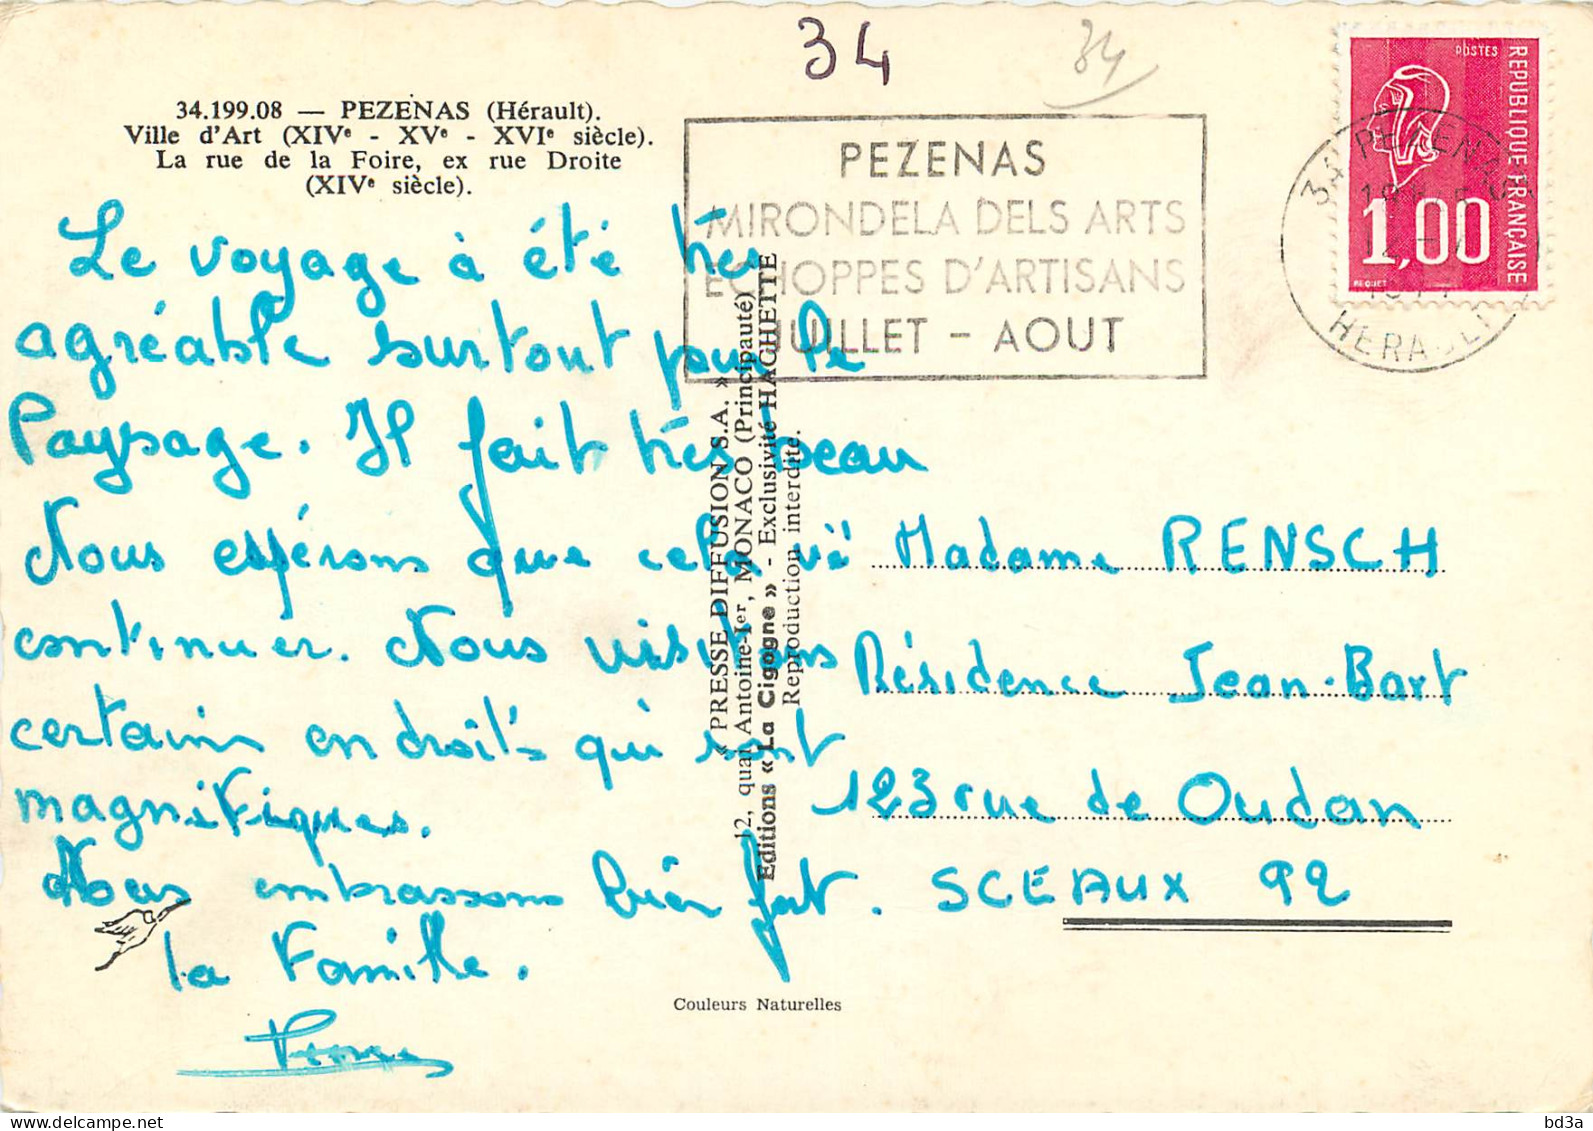 34
34
34.199.08 — PEZENAS (Hérault).
Ville d'Art (XIVe - XVe - XVIe siècle).
La rue de la Foire, ex rue Droite
(XIVe siècle).
PEZENAS
MIRONDELA DELS ARTS
ECHOPPES D'ARTISANS
JUILLET - AOUT
POSTES
REPUBLIQUE FRANÇAISE
1,00
BEQUET
34 PEZENAS
HERAULT
Le voyage à été très
agréable surtout pour le
Paysage. Il fait très beau
Nous espérons que cela và
continuer. Nous visitons
certains endroits qui sont
magnifiques.
Nous embrassons bien fort.
la Famille.
« PRESSE DIFFUSION S.A. »
12, quai Antoine-Ier, MONACO (Principauté)
Editions « La Cigogne » - Exclusivité HACHETTE
Reproduction interdite.
Madame RENSCH
Résidence Jean-Bart
123 rue de Oudan
SCEAUX 92
Couleurs Naturelles
bd3a